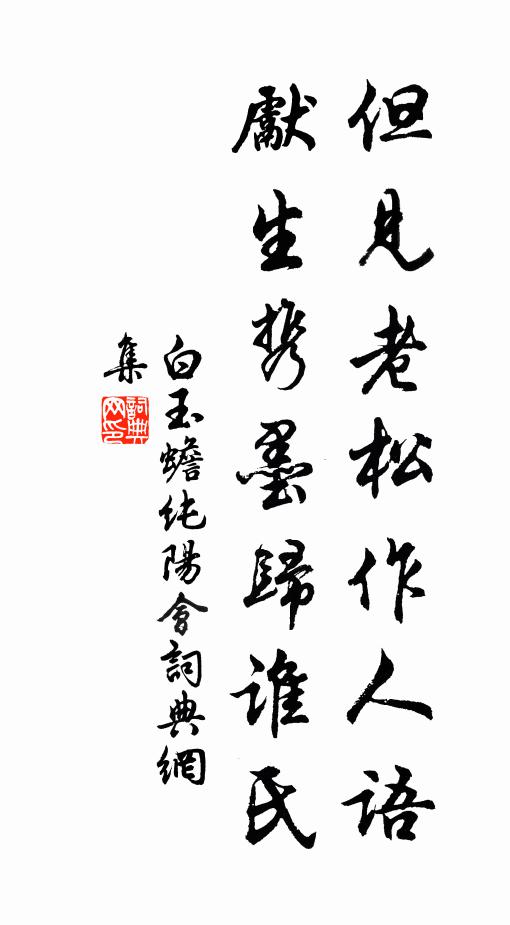 但見老松作人語
獻生携墨歸誰民
白玉蟾純陽會詞典網
集
詞典網印